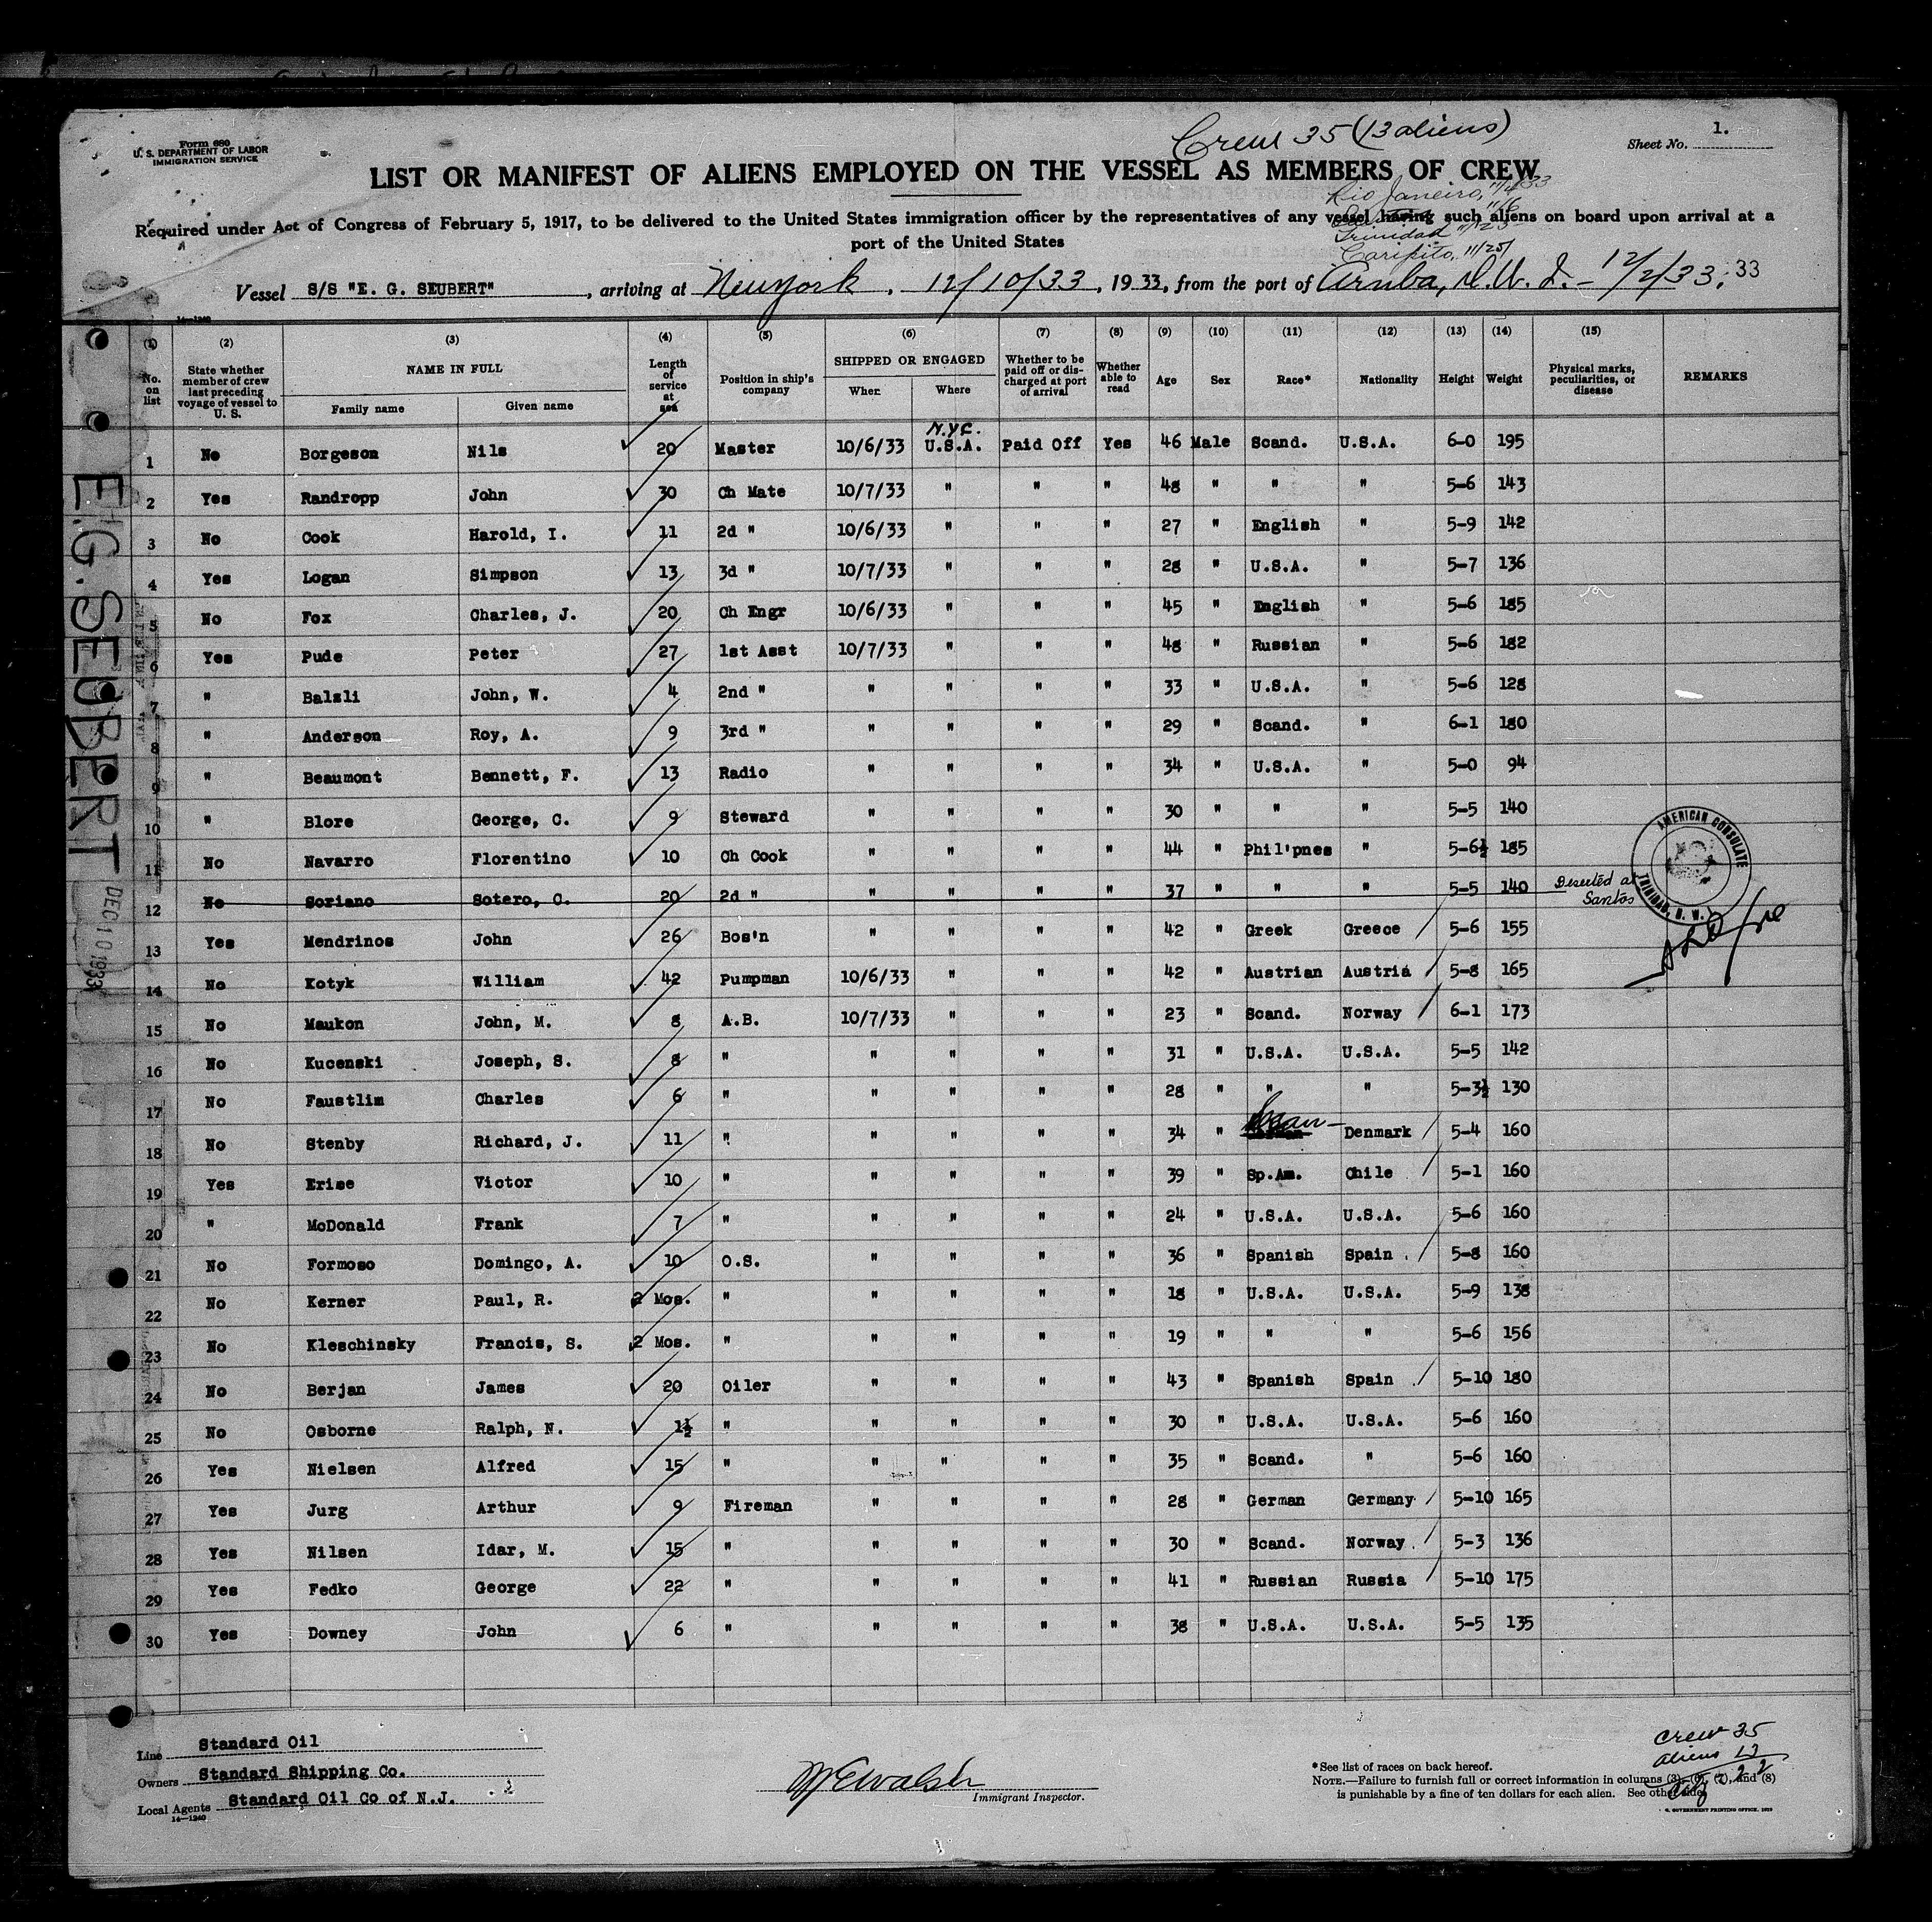 Form 680
U. S. DEPARTMENT OF LABOR
IMMIGRATION SERVICE
Crew 35 (13 aliens)
Sheet No. 1.
LIST OR MANIFEST OF ALIENS EMPLOYED ON THE VESSEL AS MEMBERS OF CREW
Rio Janeiro, 11/4/33
11/6
Required under Act of Congress of February 5, 1917, to be delivered to the United States immigration officer by the representatives of any vessel having such aliens on board upon arrival at a
port of the United States
Trinidad 11/23
Caripito, 11/25/
Vessel S/S "E. G. SEUBERT", arriving at New York, 12/10/33, 1933, from the port of Aruba, D.W.I. - 12/2/33. 33
14-1240
(1) (2) (3) (4) (5) (6) (7) (8) (9) (10) (11) (12) (13) (14) (15)
No. on list State whether member of crew last preceding voyage of vessel to U. S. NAME IN FULL Family name Given name Length of service at sea Position in ship's company SHIPPED OR ENGAGED When Where Whether to be paid off or discharged at port of arrival Whether able to read Age Sex Race* Nationality Height Weight Physical marks, peculiarities, or disease REMARKS
N.Y.C.
1 No Borgeson Nils 20 Master 10/6/33 U.S.A. Paid Off Yes 46 Male Scand. U.S.A. 6-0 195
2 Yes Randropp John 30 Ch Mate 10/7/33 " " " 48 " " " 5-6 143
3 No Cook Harold, I. 11 2d " 10/6/33 " " " 27 " English " 5-9 142
4 Yes Logan Simpson 13 3d " 10/7/33 " " " 28 " U.S.A. " 5-7 136
5 No Fox Charles, J. 20 Ch Engr 10/6/33 " " " 45 " English " 5-6 185
6 Yes Pude Peter 27 1st Asst 10/7/33 " " " 48 " Russian " 5-6 182
7 " Balzli John, W. 4 2nd " " " " " 33 " U.S.A. " 5-6 128
8 " Anderson Roy, A. 9 3rd " " " " " 29 " Scand. " 6-1 180
9 " Beaumont Bennett, F. 13 Radio " " " " 34 " U.S.A. " 5-0 94
10 " Blore George, C. 9 Steward " " " " 30 " " " 5-5 140
11 No Navarro Florentino 10 Ch Cook " " " " 44 " Phil'pnes " 5-6½ 185
12 No Soriano Sotero, C. 20 2d " " " " " 37 " " " 5-5 140 Deserted at Santos
13 Yes Mendrinos John 26 Bos'n " " " " 42 " Greek Greece 5-6 155
14 No Kotyk William 42 Pumpman 10/6/33 " " " 42 " Austrian Austria 5-8 165
15 No Maukon John, M. 8 A.B. 10/7/33 " " " 23 " Scand. Norway 6-1 173
16 No Kucenski Joseph, S. 8 " " " " " 31 " U.S.A. U.S.A. 5-5 142
17 No Faustlim Charles 6 " " " " " 28 " " " 5-3½ 130
18 No Stenby Richard, J. 11 " " " " " 34 " Scan- Denmark 5-4 160
19 Yes Erise Victor 10 " " " " " 39 " Sp.Am. Chile 5-1 160
20 " McDonald Frank 7 " " " " " 24 " U.S.A. U.S.A. 5-6 160
21 No Formoso Domingo, A. 10 O.S. " " " " 36 " Spanish Spain 5-8 160
22 No Kerner Paul, R. 2 Mos. " " " " " 18 " U.S.A. U.S.A. 5-9 138
23 No Kleschinsky Francis, S. 2 Mos. " " " " " 19 " " " 5-6 156
24 No Berjan James 20 Oiler " " " " 43 " Spanish Spain 5-10 180
25 No Osborne Ralph, N. 1½ " " " " " 30 " U.S.A. U.S.A. 5-6 160
26 Yes Nielsen Alfred 15 " " " " " 35 " Scand. " 5-6 160
27 Yes Jurg Arthur 9 Fireman " " " " 28 " German Germany 5-10 165
28 Yes Nilsen Idar, M. 15 " " " " " 30 " Scand. Norway 5-3 136
29 Yes Fedko George 22 " " " " " 41 " Russian Russia 5-10 175
30 Yes Downey John 6 " " " " " 38 " U.S.A. U.S.A. 5-5 135
AMERICAN CONSULATE
TRINIDAD, B. W. I.
E.G. SEUBERT
DEC 10 1933
Line Standard Oil
Owners Standard Shipping Co.
Local Agents Standard Oil Co of N.J.
14-1240
Immigrant Inspector.
*See list of races on back hereof.
NOTE.—Failure to furnish full or correct information in columns (3), (6), (7), and (8)
is punishable by a fine of ten dollars for each alien. See other side.
U. S. GOVERNMENT PRINTING OFFICE
Crew 35
aliens 13
Citz 22